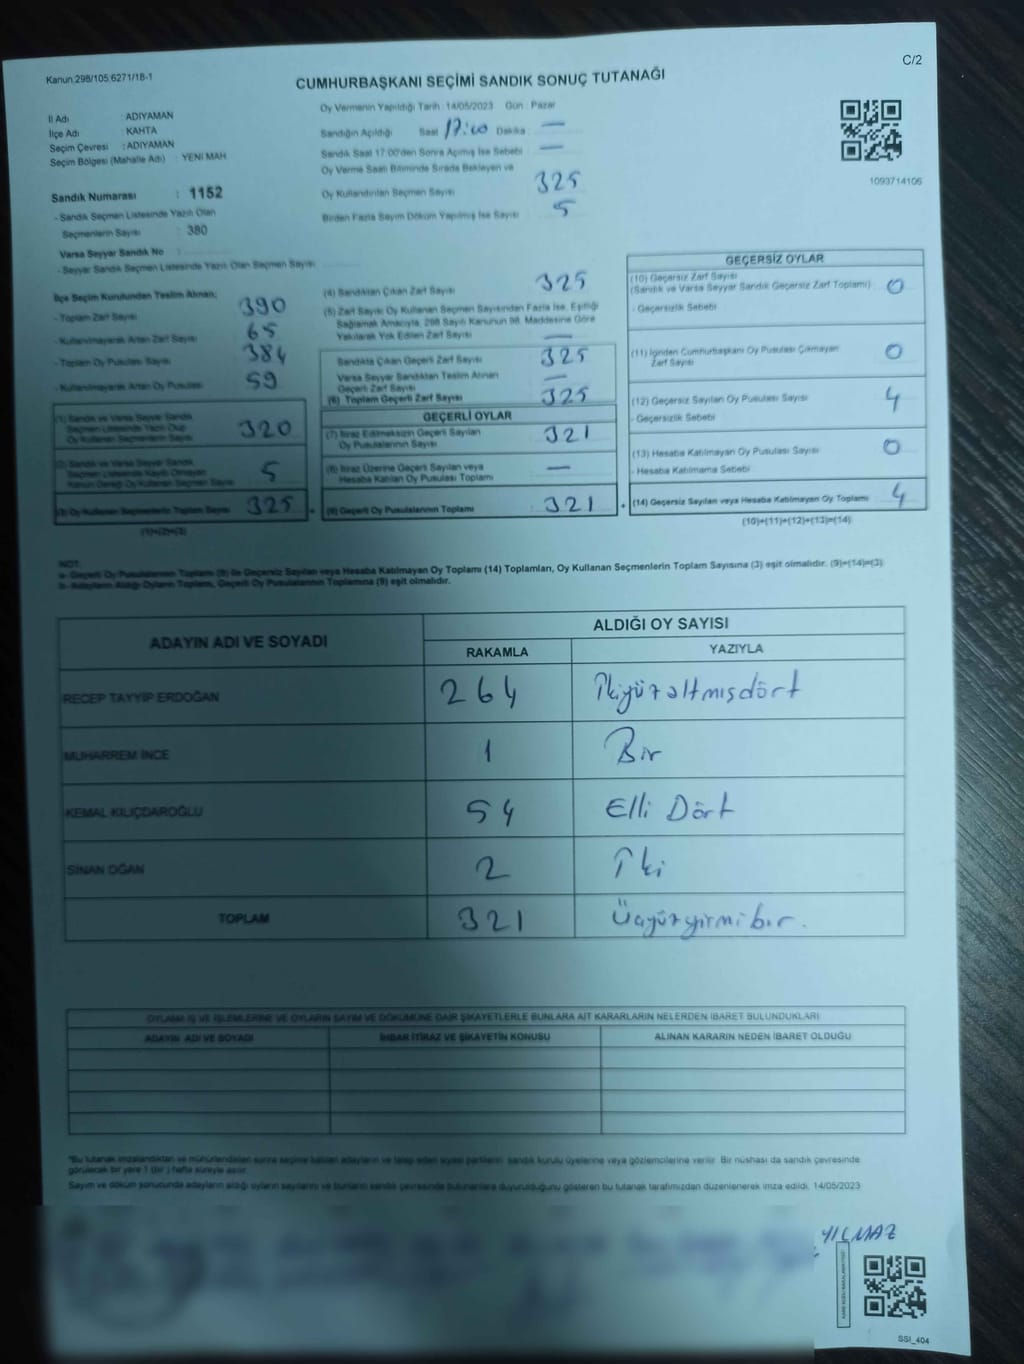 Kanun.298/105.6271/18-1
C/2
CUMHURBAŞKANI SEÇİMİ SANDIK SONUÇ TUTANAĞI
İl Adı ADIYAMAN
İlçe Adı : KAHTA
Seçim Çevresi : ADIYAMAN
Seçim Bölgesi (Mahalle Adı) : YENİ MAH
Sandık Numarası : 1152
- Sandık Seçmen Listesinde Yazılı Olan
Seçmenlerin Sayısı : 380
Varsa Seyyar Sandık No :
- Seyyar Sandık Seçmen Listesinde Yazılı Olan Seçmen Sayısı
Oy Vermenin Yapıldığı Tarih : 14/05/2023 Gün : Pazar
Sandığın Açıldığı Saat 17:00 Dakika : —
Sandık Saat 17:00'den Sonra Açılmış İse Sebebi —
Oy Verme Saati Bitiminde Sırada Bekleyen ve
Oy Kullandırılan Seçmen Sayısı 325
Birden Fazla Sayım Döküm Yapılmış İse Sayısı 5
1093714106
İlçe Seçim Kurulundan Teslim Alınan;
- Toplam Zarf Sayısı 390
- Kullanılmayarak Artan Zarf Sayısı 65
- Toplam Oy Pusulası Sayısı 384
- Kullanılmayarak Artan Oy Pusulası 59
(1) Sandık ve Varsa Seyyar Sandık
Seçmen Listesinde Yazılı Olup
Oy Kullanan Seçmenlerin Sayısı 320
(2) Sandık ve Varsa Seyyar Sandık
Seçmen Listesinde Kayıtlı Olmayan
Kanun Gereği Oy Kullanan Seçmen Sayısı 5
(3) Oy Kullanan Seçmenlerin Toplam Sayısı 325
(1)+(2)=(3)
(4) Sandıktan Çıkan Zarf Sayısı 325
(5) Zarf Sayısı Oy Kullanan Seçmen Sayısından Fazla İse, Eşitliği
Sağlamak Amacıyla, 298 Sayılı Kanunun 98. Maddesine Göre
Yakılarak Yok Edilen Zarf Sayısı —
Sandıkta Çıkan Geçerli Zarf Sayısı 325
Varsa Seyyar Sandıktan Teslim Alınan
Geçerli Zarf Sayısı —
(6) Toplam Geçerli Zarf Sayısı 325
GEÇERLİ OYLAR
(7) İtiraz Edilmeksizin Geçerli Sayılan
Oy Pusulalarının Sayısı 321
(8) İtiraz Üzerine Geçerli Sayılan veya
Hesaba Katılan Oy Pusulası Toplamı —
(9) Geçerli Oy Pusulalarının Toplamı : 321
GEÇERSİZ OYLAR
(10) Geçersiz Zarf Sayısı
(Sandık ve Varsa Seyyar Sandık Geçersiz Zarf Toplamı) 0
- Geçersizlik Sebebi
(11) İçinden Cumhurbaşkanı Oy Pusulası Çıkmayan
Zarf Sayısı 0
(12) Geçersiz Sayılan Oy Pusulası Sayısı 4
- Geçersizlik Sebebi
(13) Hesaba Katılmayan Oy Pusulası Sayısı 0
- Hesaba Katılmama Sebebi
(14) Geçersiz Sayılan veya Hesaba Katılmayan Oy Toplamı 4
(10)+(11)+(12)+(13)=(14)
NOT:
a- Geçerli Oy Pusulalarının Toplamı (9) ile Geçersiz Sayılan veya Hesaba Katılmayan Oy Toplamı (14) Toplamları, Oy Kullanan Seçmenlerin Toplam Sayısına (3) eşit olmalıdır. (9)+(14)=(3)
b- Adayların Aldığı Oyların Toplamı, Geçerli Oy Pusulalarının Toplamına (9) eşit olmalıdır.
ADAYIN ADI VE SOYADI ALDIĞI OY SAYISI
RAKAMLA YAZIYLA
RECEP TAYYİP ERDOĞAN 264 İkiyüzaltmışdört
MUHARREM İNCE 1 Bir
KEMAL KILIÇDAROĞLU 54 Elli Dört
SİNAN OĞAN 2 İki
TOPLAM 321 Üçyüzyirmibir.
OYLAMA İŞ VE İŞLEMLERİNE VE OYLARIN SAYIM VE DÖKÜMÜNE DAİR ŞİKAYETLERLE BUNLARA AİT KARARLARIN NELERDEN İBARET BULUNDUKLARI
ADAYIN ADI VE SOYADI İHBAR İTİRAZ VE ŞİKAYETİN KONUSU ALINAN KARARIN NEDEN İBARET OLDUĞU
*Bu tutanak imzalandıktan ve mühürlendikten sonra seçime katılan adayların ve talep eden siyasi partilerin sandık kurulu üyelerine veya gözlemcilerine verilir. Bir nüshası da sandık çevresinde
görülecek bir yere 1 (bir) hafta süreyle asılır.
Sayım ve döküm sonucunda adayların aldığı oyların sayılarını ve bunların sandık çevresinde bulunanlara duyurulduğunu gösteren bu tutanak tarafımızdan düzenlenerek imza edildi. 14/05/2023
YILMAZ
SSI_404